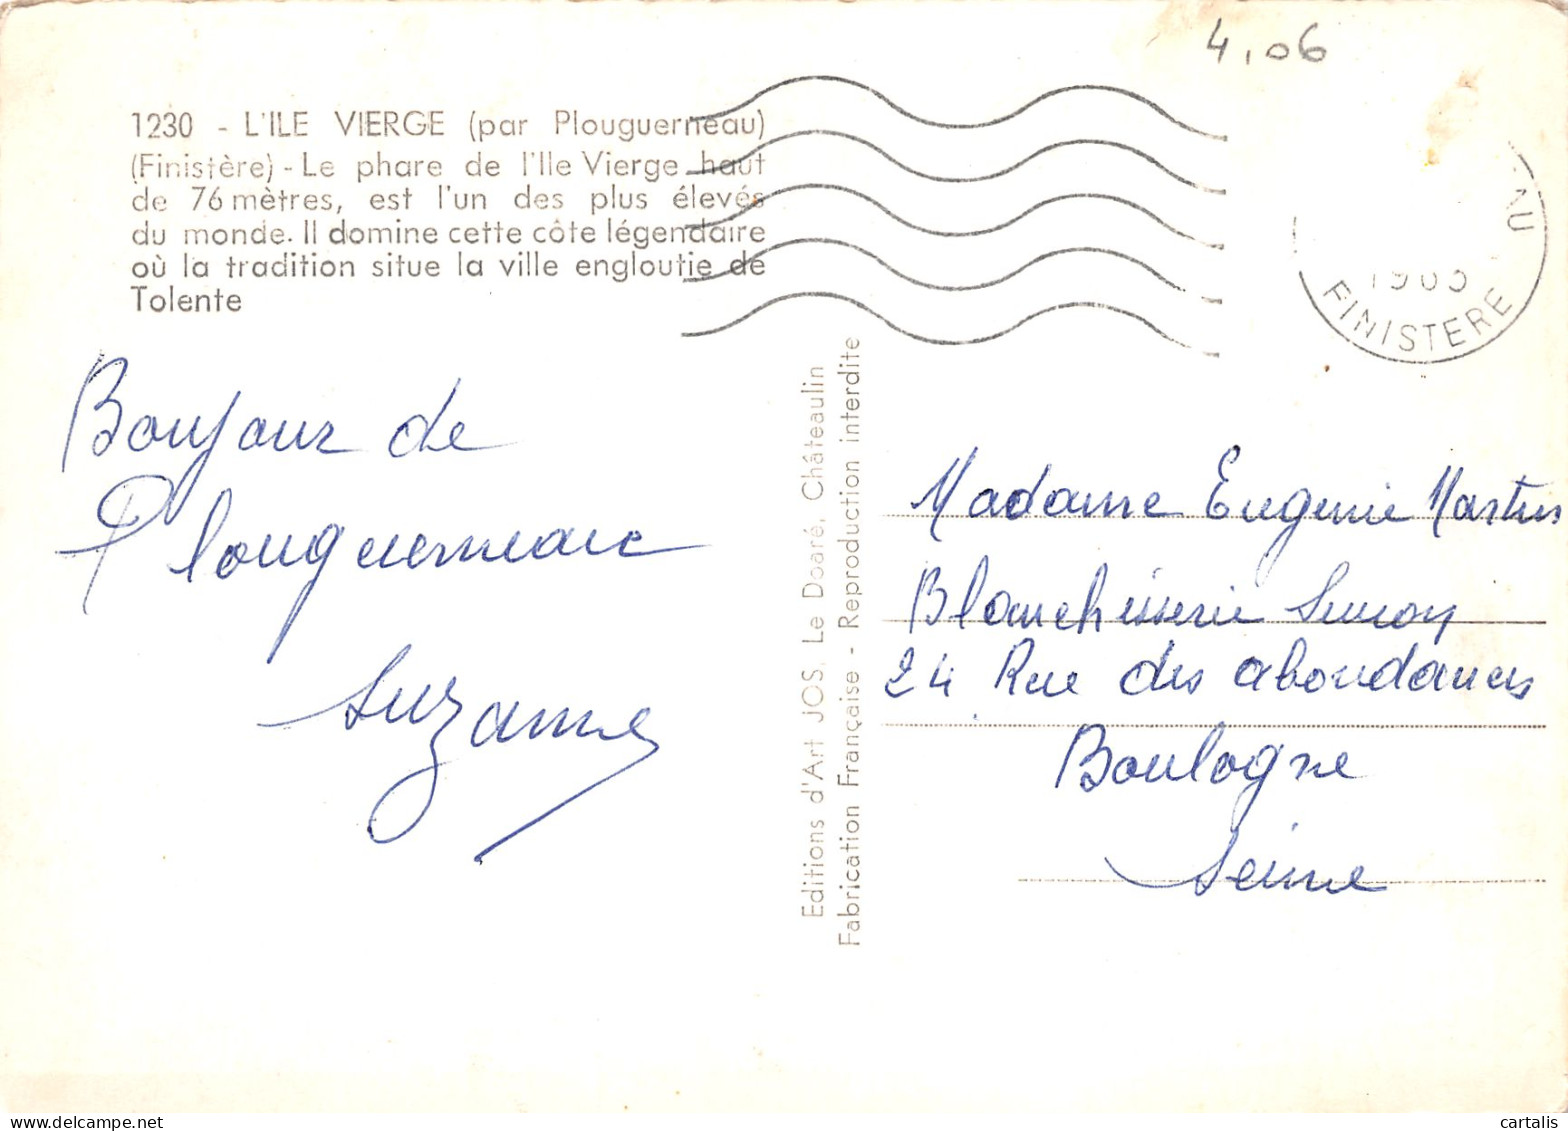 4,06
1230 - L'ILE VIERGE (par Plouguerneau)
(Finistère) - Le phare de l'Ile Vierge haut
de 76 mètres, est l'un des plus élevés
du monde. Il domine cette côte légendaire
où la tradition situe la ville engloutie de
Tolente
FINISTERE
Bonjour de
Plouguerneau
Suzanne
Editions d'Art JOS, Le Doaré, Châteaulin
Fabrication Française - Reproduction interdite
Madame Eugenie
Blanchisserie Simon
24 Rue des abondances
Boulogne
Seine
cartalis